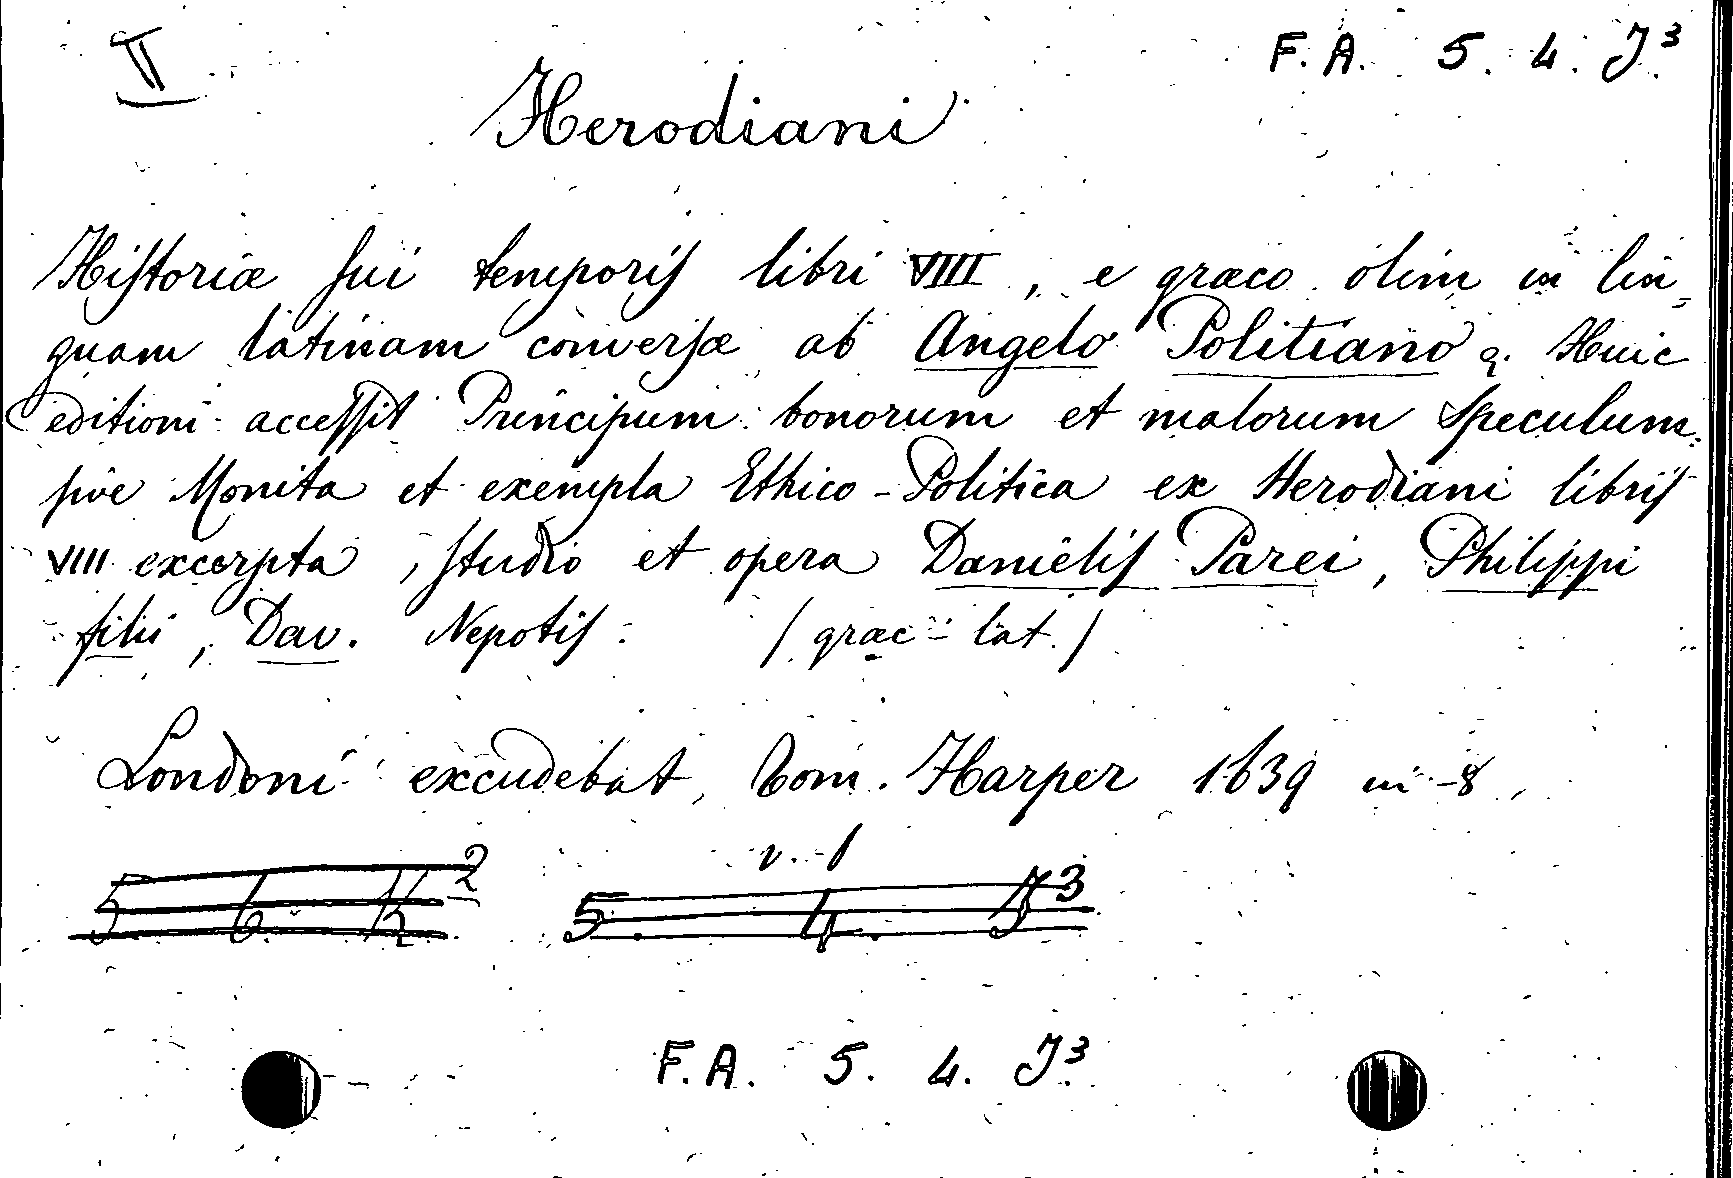 II
F. A. 5. 4. J³.
Herodiani
Historiæ sui temporis libri VIIII, e græco olim in lin-
guam latinam conversæ ab Angelo Politiano q. Huic
editioni accessit Principum bonorum et malorum Speculum
sive Monita et exempla Ethico-Politica ex Herodiani libris
VIIII excerpta, studio et opera Danielis Parei, Philippi
filii, Dav. Nepotis. / græc - lat. /
Londoni excudebat, Tom. Harper 1639 in-8
v. f
5 6 K²
5. 4. J³
F. A. 5. 4. J³.